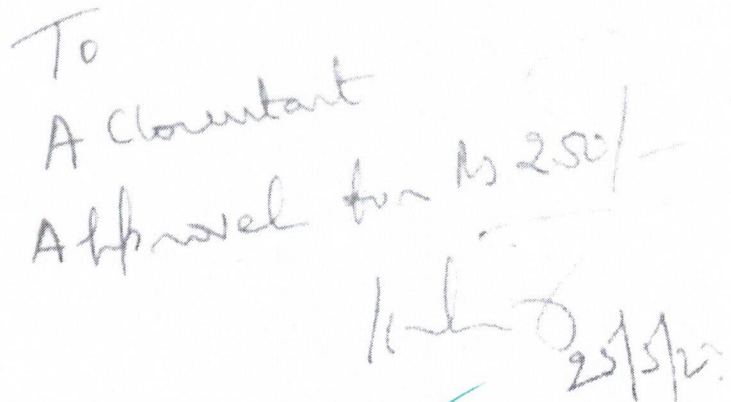 To
Accountant
Approved for Rs 250/-
25/5/2